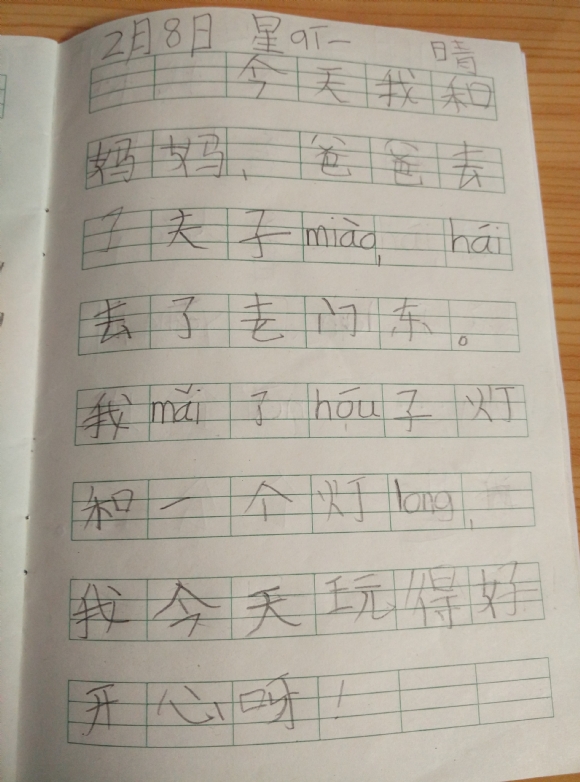 2月8日 星qī一 晴
今天我和
妈妈、爸爸去
了夫子miào,hái
去了老门东。
我mǎi了hóu子灯
和一个灯long,
我今天玩得好
开心呀!